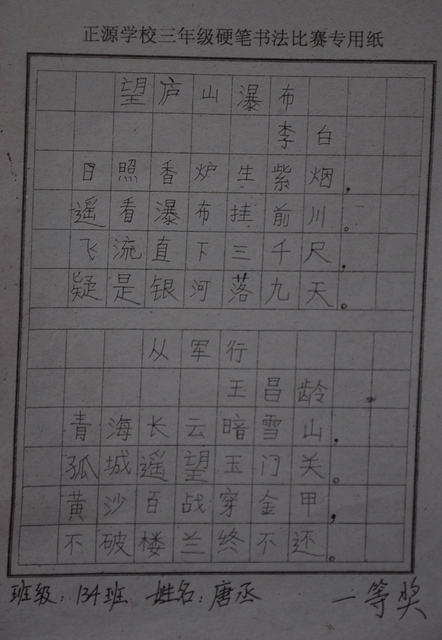 正源学校三年级硬笔书法比赛专用纸
望庐山瀑布
李白
日照香炉生紫烟，
遥看瀑布挂前川。
飞流直下三千尺，
疑是银河落九天。
从军行
王昌龄
青海长云暗雪山，
孤城遥望玉门关。
黄沙百战穿金甲，
不破楼兰终不还。
班级：134班 姓名：唐丞 一等奖